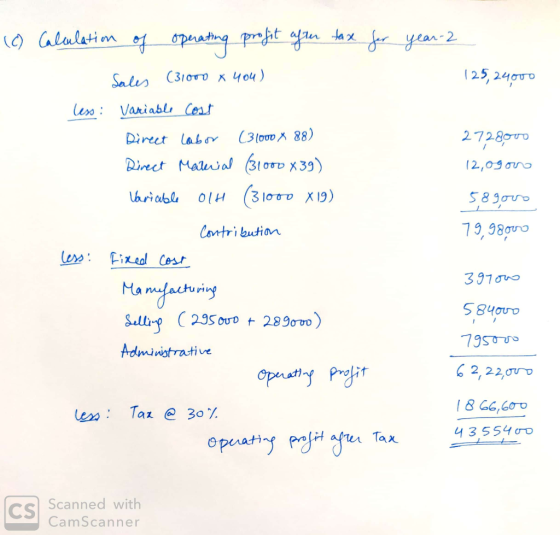 (C) Calculation of operating profit after tax for year-2
Sales (31000 x 404) 125,24,000
Less: Variable Cost
Direct Labor (31000 x 88) 2728000
Direct Material (31000 x 39) 12,09000
Variable O/H (31000 x 19) 589000
Contribution 79,98000
Less: Fixed Cost
Manufacturing 397000
Selling (295000 + 289000) 584000
Administrative 795000
Operating Profit 62,22,000
Less: Tax @ 30% 1866,600
Operating profit after Tax 4355400
CS Scanned with
CamScanner